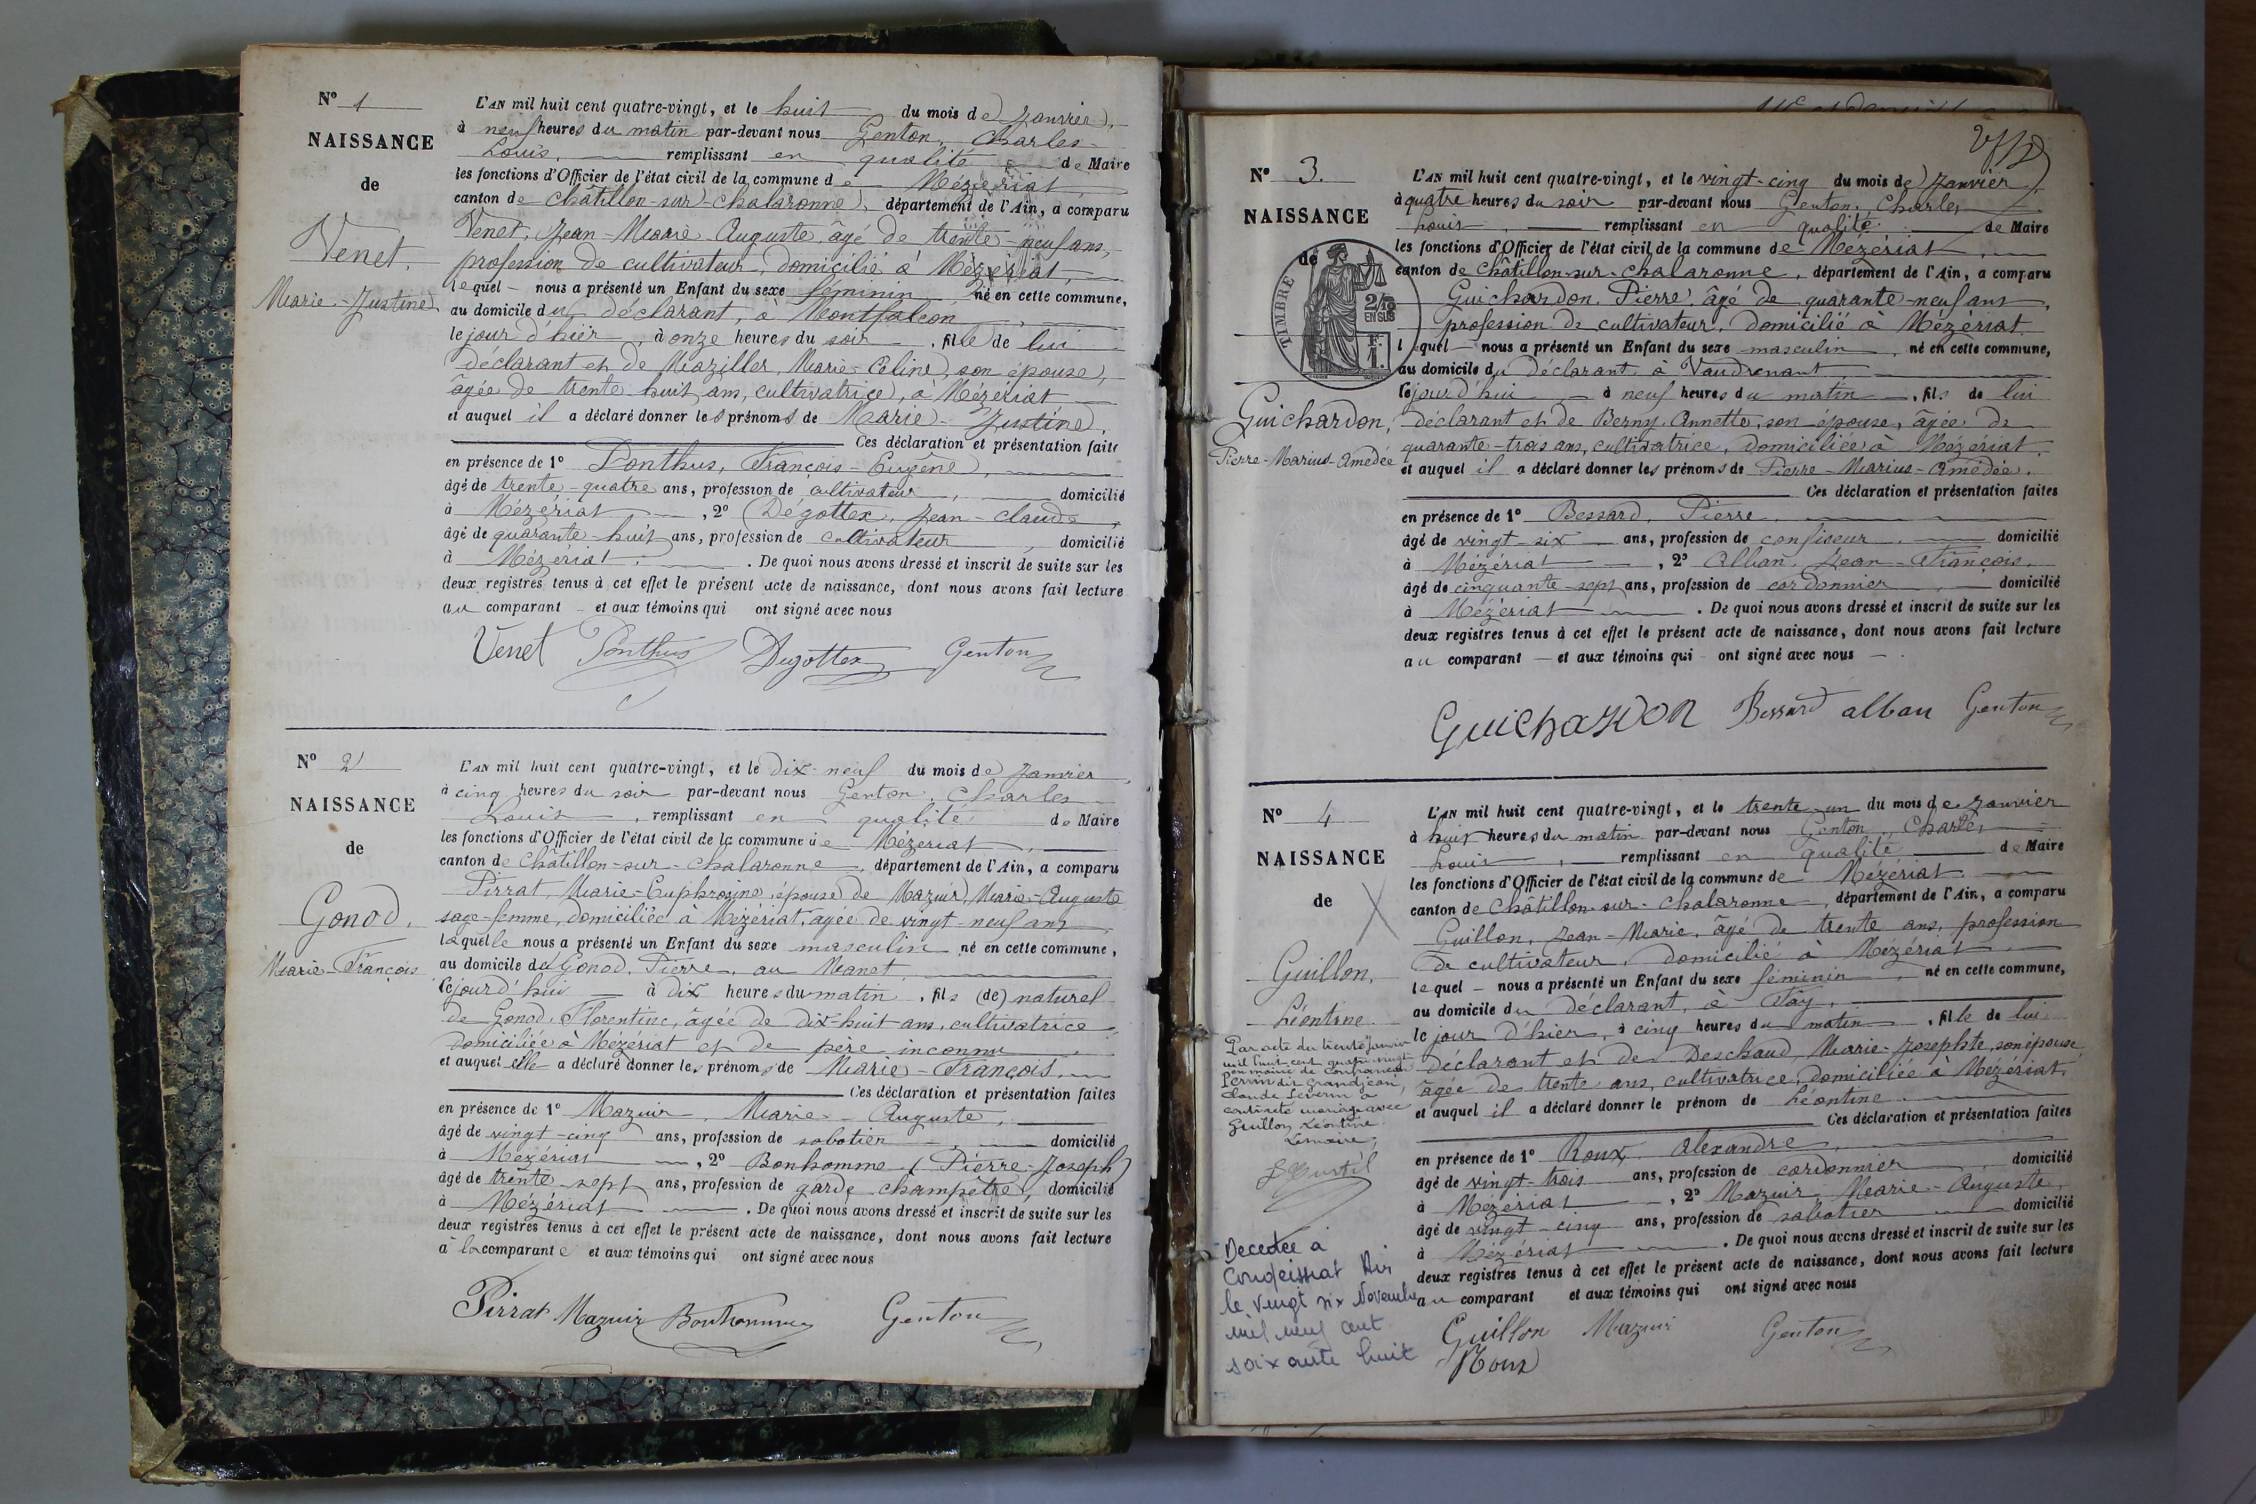 N° 1
NAISSANCE
de
Venet,
Marie-Justine
L'AN mil huit cent quatre-vingt, et le huit du mois de Janvier,
à neuf heures du matin par-devant nous Genton, Charles-
Louis, remplissant en qualité de Maire
les fonctions d'Officier de l'état civil de la commune de Mézériat,
canton de Châtillon-sur-Chalaronne, département de l'Ain, a comparu
Venet, Jean-Marie Auguste, âgé de trente-neuf ans,
profession de cultivateur, domicilié à Mézériat,
lequel nous a présenté un Enfant du sexe féminin né en cette commune,
au domicile du déclarant, à Montfalcon,
le jour d'hier, à onze heures du soir, fille de lui
déclarant et de Maziller, Marie-Celine, son épouse,
âgée de trente huit ans, cultivatrice, à Mézériat
et auquel il a déclaré donner les prénoms de Marie-Justine,
Ces déclaration et présentation faite
en présence de 1° Ponthus, François-Eugène,
âgé de trente-quatre ans, profession de cultivateur, domicilié
à Mézériat, 2° Dégottex, Jean-Claude,
âgé de quarante-huit ans, profession de cultivateur, domicilié
à Mézériat. De quoi nous avons dressé et inscrit de suite sur les
deux registres tenus à cet effet le présent acte de naissance, dont nous avons fait lecture
au comparant et aux témoins qui ont signé avec nous
Venet Ponthus Degottex Genton
N° 2
NAISSANCE
de
Gonod,
Marie-François
L'AN mil huit cent quatre-vingt, et le dix-neuf du mois de Janvier,
à cinq heures du soir par-devant nous Genton, Charles
Louis, remplissant en qualité de Maire
les fonctions d'Officier de l'état civil de la commune de Mézériat,
canton de Châtillon-sur-Chalaronne, département de l'Ain, a comparu
Pirrat, Marie-Euphrosine, épouse de Mazuir, Marie-Auguste
sage-femme, domiciliée à Mézériat, âgée de vingt-neuf ans,
laquelle nous a présenté un Enfant du sexe masculin né en cette commune,
au domicile de Gonod, Pierre, au Manet
le jour d'hui à dix heures du matin, fils (de) naturel
de Gonod, Florentine, âgée de dix-huit ans, cultivatrice,
domiciliée à Mézériat et de père inconnu
et auquel elle a déclaré donner les prénoms de Marie-François.
Ces déclaration et présentation faites
en présence de 1° Mazuir, Marie-Auguste,
âgé de vingt-cinq ans, profession de sabotier, domicilié
à Mézériat, 2° Bonhomme (Pierre-Joseph)
âgé de trente-sept ans, profession de garde champêtre, domicilié
à Mézériat. De quoi nous avons dressé et inscrit de suite sur les
deux registres tenus à cet effet le présent acte de naissance, dont nous avons fait lecture
à la comparante et aux témoins qui ont signé avec nous
Pirrat Mazuir Bonhomme Genton
N° 3.
NAISSANCE
de
TIMBRE
2/10
EN SUS
F.
1.
Guichardon,
Pierre-Marius-Amédée
L'AN mil huit cent quatre-vingt, et le vingt-cinq du mois de Janvier,
à quatre heures du soir par-devant nous Genton, Charles
Louis, remplissant en qualité de Maire
les fonctions d'Officier de l'état civil de la commune de Mézériat,
canton de Châtillon-sur-Chalaronne, département de l'Ain, a comparu
Guichardon, Pierre, âgé de quarante-neuf ans,
profession de cultivateur, domicilié à Mézériat
lequel nous a présenté un Enfant du sexe masculin, né en cette commune,
au domicile du déclarant à Vaudrenant,
le jour d'hui à neuf heures du matin, fils de lui
déclarant et de Berny, Annette, son épouse, âgée de
quarante-trois ans, cultivatrice, domiciliée à Mézériat
et auquel il a déclaré donner les prénoms de Pierre-Marius-Amédée.
Ces déclaration et présentation faites
en présence de 1° Bessard, Pierre,
âgé de vingt-six ans, profession de confiseur, domicilié
à Mézériat, 2° Alban, Jean-François,
âgé de cinquante-sept ans, profession de cordonnier, domicilié
à Mézériat. De quoi nous avons dressé et inscrit de suite sur les
deux registres tenus à cet effet le présent acte de naissance, dont nous avons fait lecture
au comparant et aux témoins qui ont signé avec nous.
Guichardon Bessard alban Genton
N° 4
NAISSANCE
de
Guillon,
Léontine
Par acte du trente Janvier
mil huit cent quatre-vingt
Perrin dit Grandjean,
Claude Séverin a
contracté mariage avec
Guillon Léontine.
Le maire,
Décédée à
Condeissiat Ain
le vingt six Novembre
mil neuf cent
soixante huit
L'AN mil huit cent quatre-vingt, et le trente-un du mois de Janvier
à huit heures du matin par-devant nous Genton, Charles
Louis, remplissant en qualité de Maire
les fonctions d'Officier de l'état civil de la commune de Mézériat.
canton de Châtillon-sur-Chalaronne, département de l'Ain, a comparu
Guillon, Jean-Marie, âgé de trente ans, profession
de cultivateur, domicilié à Mézériat
lequel nous a présenté un Enfant du sexe féminin, né en cette commune,
au domicile du déclarant, à Fay,
le jour d'hier, à cinq heures du matin, fille de lui
déclarant et de Deschaud, Marie-Josephte, son épouse
âgée de trente ans, cultivatrice, domiciliée à Mézériat.
et auquel il a déclaré donner le prénom de Léontine.
Ces déclaration et présentation faites
en présence de 1° Roux, Alexandre,
âgé de vingt-trois ans, profession de cordonnier, domicilié
à Mézériat, 2° Mazuir, Marie-Auguste,
âgé de vingt-cinq ans, profession de sabotier domicilié
à Mézériat. De quoi nous avons dressé et inscrit de suite sur les
deux registres tenus à cet effet le présent acte de naissance, dont nous avons fait lecture
au comparant et aux témoins qui ont signé avec nous
Guillon Mazuir Genton
Roux